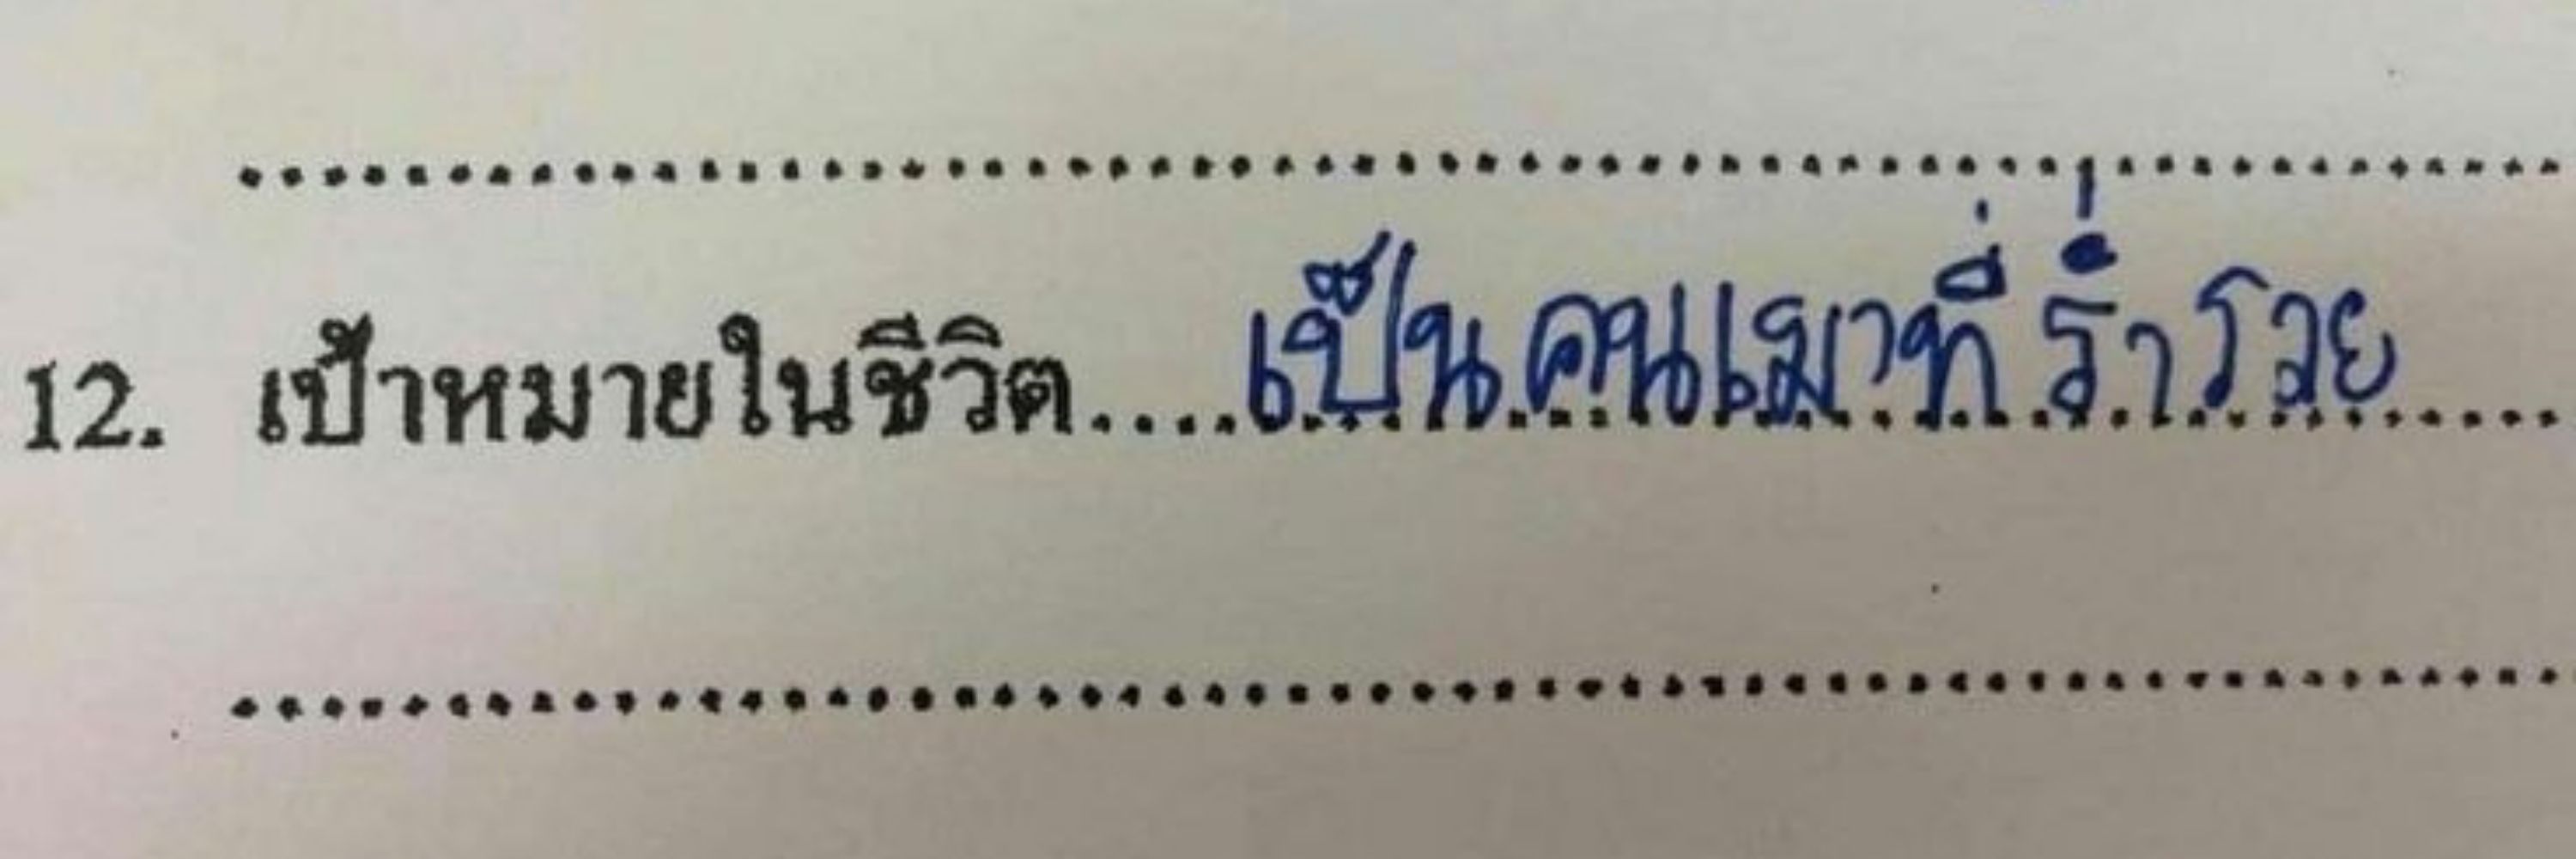 12. เป้าหมายในชีวิต....เป็นคนเมาที่ร่ำรวย